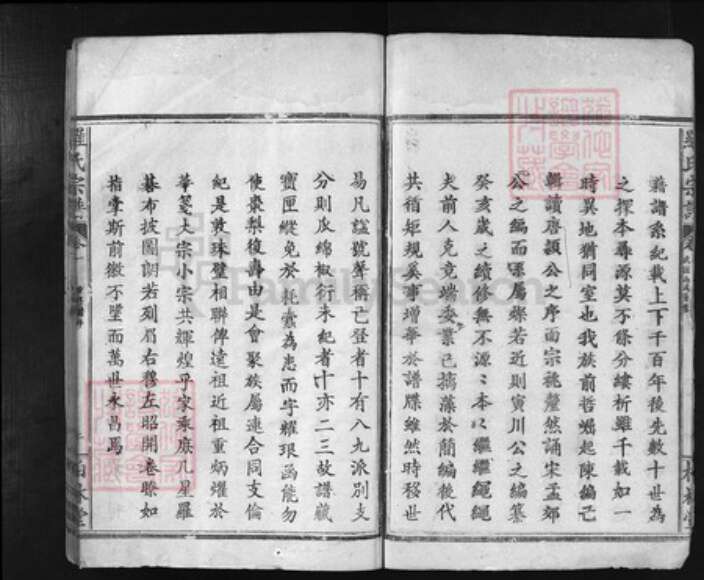 藉譜系紀載上下千百年後先數十世為
之探本尋源莫不條分縷析雖千載如一
時異地猶同室也我族前哲崛起陳編已
輯讀唐顥公之序而宗祧釐然誦宋孟郊
公之編而系屬燦若近則寅川公之編纂
癸亥歲之續修無不源源本本以繼繼繩繩
夫前人克竟端委業已摛藻於簡編後代
共循矩規奚事增華於譜牒雖然時移世
易凡諡號聲稱已登者十有八九派別支
分則瓜綿椒衍未紀者十亦二三故譜藏
寶匣縱免於耗蠹為患而字耀琅函能勿
使棗梨復壽由是會聚族屬連合同支倫
紀是敦珠璧相聯俾遠祖近祖重炳燿於
華箋大宗小宗共輝煌乎家乘庶几星羅
棊布披圖朗若列眉右穆左昭開卷瞭如
指掌斯前徽不墜而萬世永昌焉
羅氏宗譜 卷一
柏林堂
FamilySearch